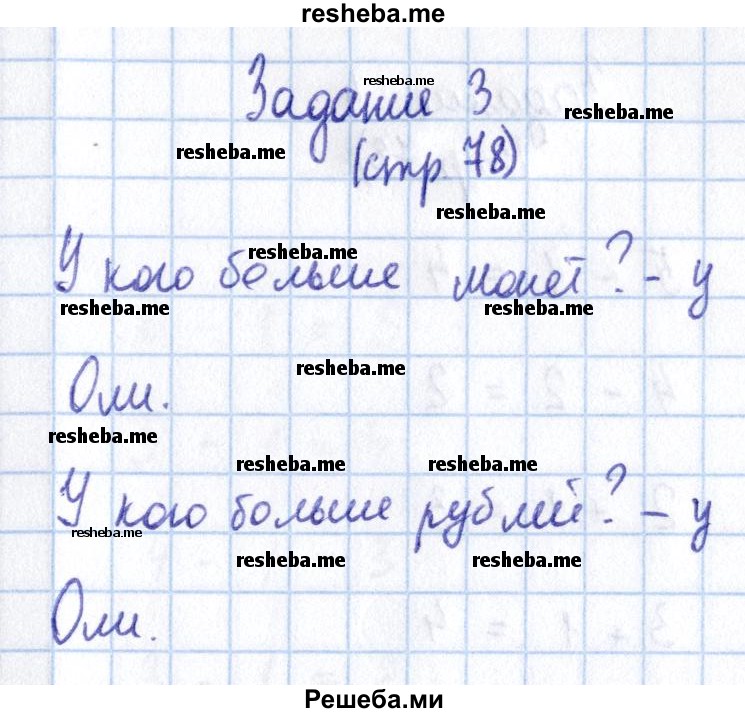 resheba.me
Задание 3
resheba.me
resheba.me
resheba.me
(стр. 78)
resheba.me
У кого больше монет? - у
resheba.me
resheba.me
resheba.me
Оли.
resheba.me
resheba.me
resheba.me
resheba.me
У кого больше рублей? - у
resheba.me
resheba.me
resheba.me
Оли.
Решеба.ми